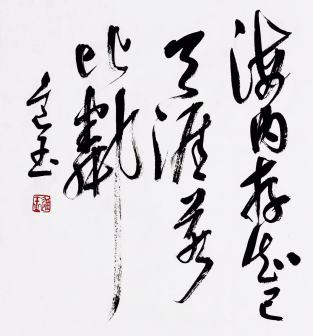 海内存知己
天涯若
比邻